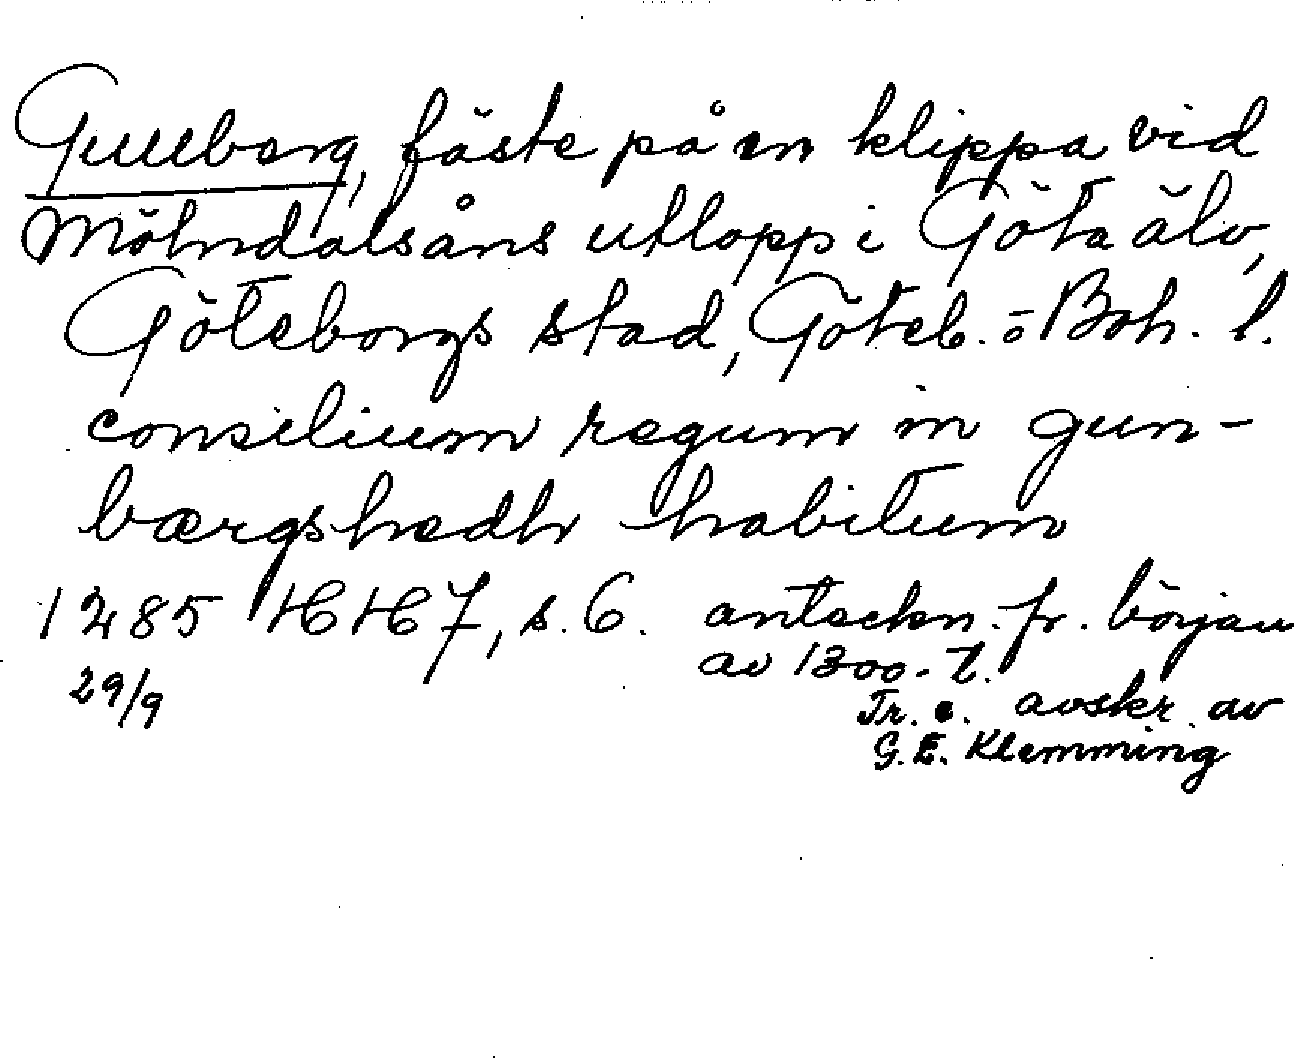 Gullberg, fäste på en klippa vid
Mölndalsåns utlopp i Göta älv,
Göteborgs stad, Göteb. o Boh. l.
consilium regum in gun-
bærgshedh habitum
1285 HH 7, s. 6. anteckn. fr. början
29/9 av 1300-t.
Tr. e. avskr. av
G. E. Klemming